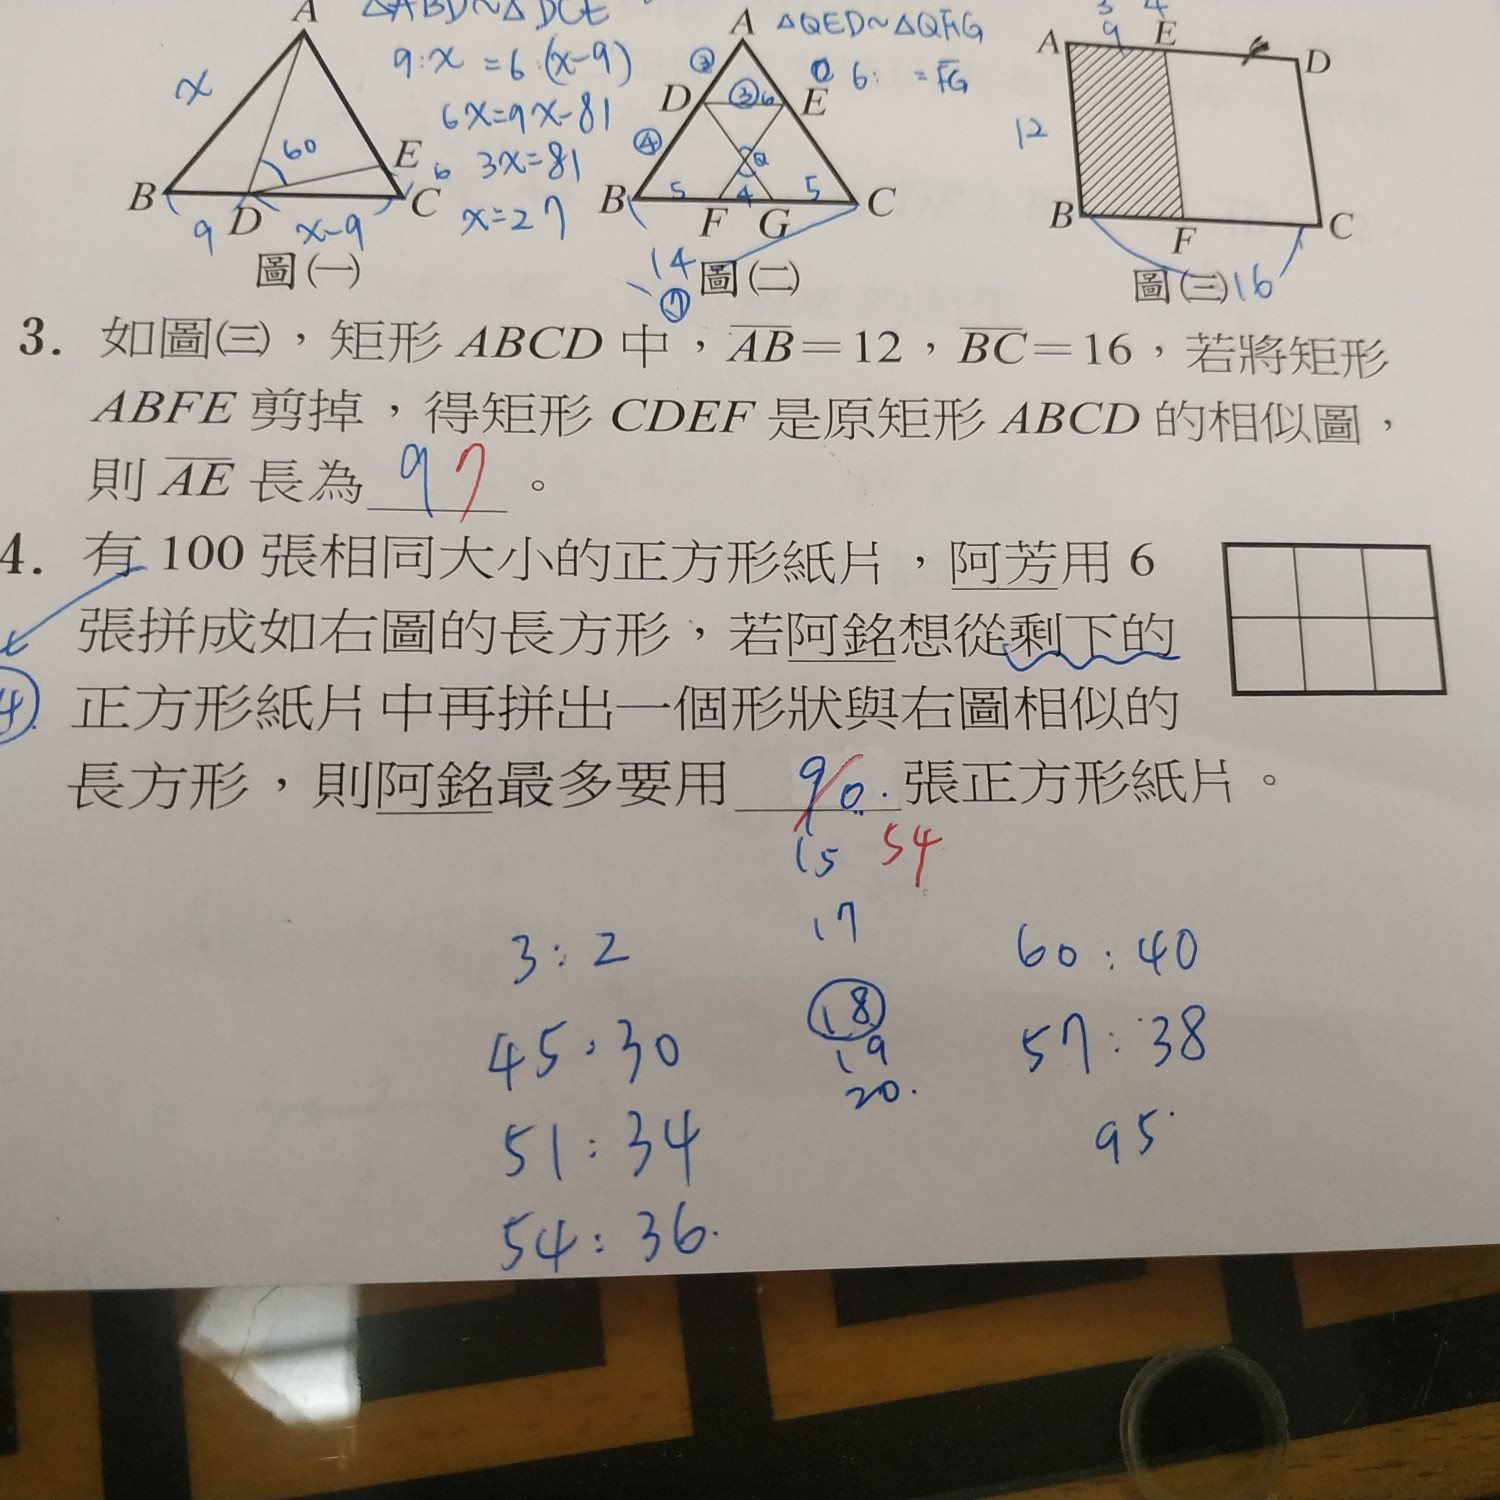 △ABD~△DCE
9:x = 6:(x-9)
6x=9x-81
3x=81
x=27
A
x
60
E
6
B
D
C
9
x-9
圖(一)
△QED~△QFG
6: = FG
A
②
D
③ 6
E
④
Q
B
5
F
4
G
5
C
14
⑦
圖(二)
3 4
9
A
E
D
12
B
F
C
圖(三)
16
3. 如圖(三),矩形 ABCD 中,AB=12,BC=16,若將矩形
ABFE 剪掉,得矩形 CDEF 是原矩形 ABCD 的相似圖,
則 AE 長為 9 7 。
4. 有 100 張相同大小的正方形紙片,阿芳用 6
張拼成如右圖的長方形,若阿銘想從剩下的
正方形紙片中再拼出一個形狀與右圖相似的
長方形,則阿銘最多要用 90. 張正方形紙片。
15 54
17
18
19
20.
3:2
45:30
51:34
54:36.
60:40
57:38
95